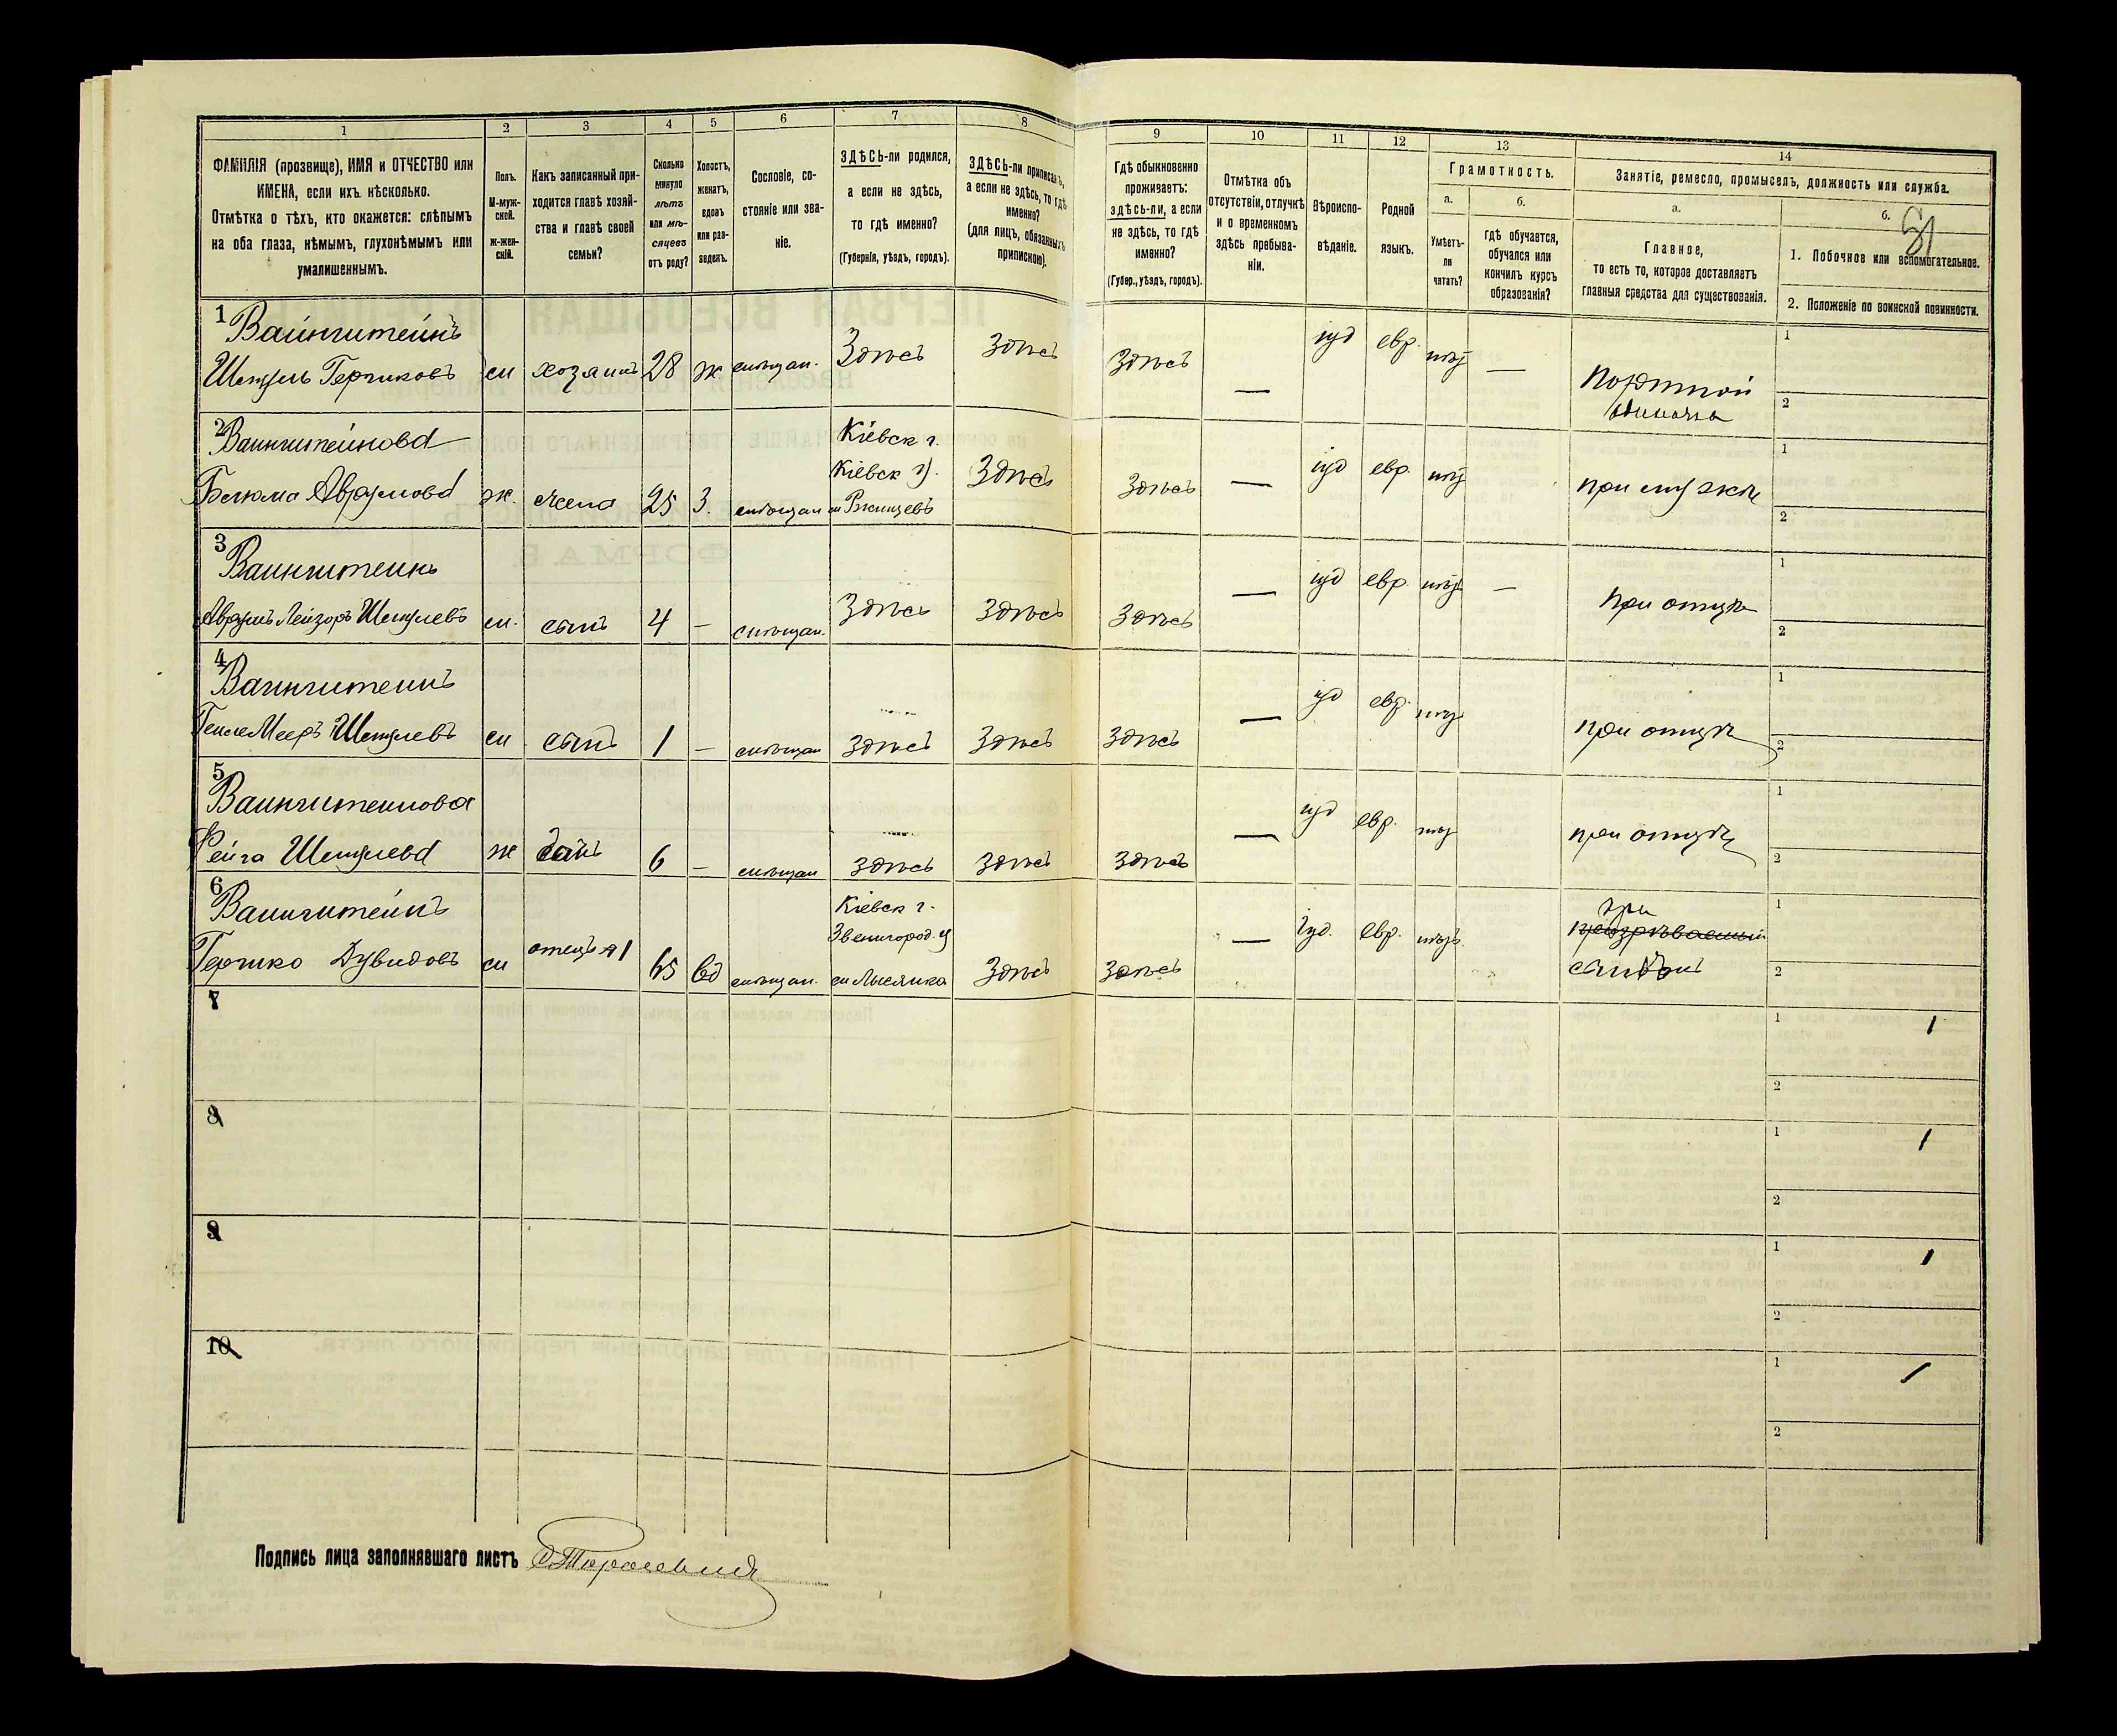 1
2
3
4
5
6
7
8
9
10
11
12
13
14
ФАМИЛІЯ (прозвище), ИМЯ и ОТЧЕСТВО или
ИМЕНА, если ихъ нѣсколько.
Отмѣтка о тѣхъ, кто окажется: слѣпымъ
на оба глаза, нѣмымъ, глухонѣмымъ или
умалишеннымъ.
Полъ.
М-муж-
ской.
ж-жен-
скій.
Какъ записанный при-
ходится главѣ хозяй-
ства и главѣ своей
семьи?
Сколько
минуло
лѣтъ
или мѣ-
сяцевъ
отъ роду?
Холостъ,
женатъ,
вдовъ
или раз-
веденъ.
Сословіе, со-
стояніе или зва-
ніе.
ЗДѢСЬ-ли родился,
а если не здѣсь,
то гдѣ именно?
(Губернія, уѣздъ, городъ).
ЗДѢСЬ-ли приписанъ,
а если не здѣсь, то гдѣ
именно?
(для лицъ, обязанныхъ
припискою).
Гдѣ обыкновенно
проживаетъ:
здѣсь-ли, а если
не здѣсь, то гдѣ
именно?
(Губер., уѣздъ, городъ).
Отмѣтка объ
отсутствіи, отлучкѣ
и о временномъ
здѣсь пребыва-
ніи.
Вѣроиспо-
вѣданіе.
Родной
языкъ.
Грамотность.
а.
Умѣетъ-
ли
читать?
б.
гдѣ обучается,
обучался или
кончилъ курсъ
образованія?
Занятіе, ремесло, промыселъ, должность или служба.
а.
Главное,
то есть то, которое доставляетъ
главныя средства для существованія.
б.
1. Побочное или вспомогательное.
2. Положеніе по воинской повинности.
1 Вайнштейнъ
Шемуль Гершковъ м хозяинъ 28 ж мѣщан. Здѣсь Здѣсь Здѣсь — іуд евр. нѣт — Портной
1
2
2 Вайнштейнова
Авраумова ж. жена 25 З. мѣщан Кіевск г.
Кіевск у.
м Ржищевъ Здѣсь Здѣсь — іуд евр. нѣт при мужѣ
1
2
3 Вайнштейнъ
Аврумъ Лейзоръ Шемулевъ м. сынъ 4 — мѣщан. Здѣсь Здѣсь Здѣсь — іуд евр. нѣт — При отцѣ
1
2
4 Вайнштейнъ
Мееръ Шемулевъ м сынъ 1 — мѣщан здѣсь Здѣсь Здѣсь — іуд евр. нѣт при отцѣ
1
2
5 Вайнштейнова
Фейга Шемулева ж дочь 6 — мѣщан здѣсь здѣсь здѣсь — іуд евр. нѣт при отцѣ
1
2
6 Вайнштейнъ
Гершко Дувидовъ м отецъ 1 65 вд мѣщан. Кіевск г.
Звенигород. у
м Лысянка Здѣсь Здѣсь — Іуд. евр. нѣтъ при
сынѣ
1
2
7
1
2
8
1
2
9
1
2
10
1
2
Подпись лица заполнявшаго листъ